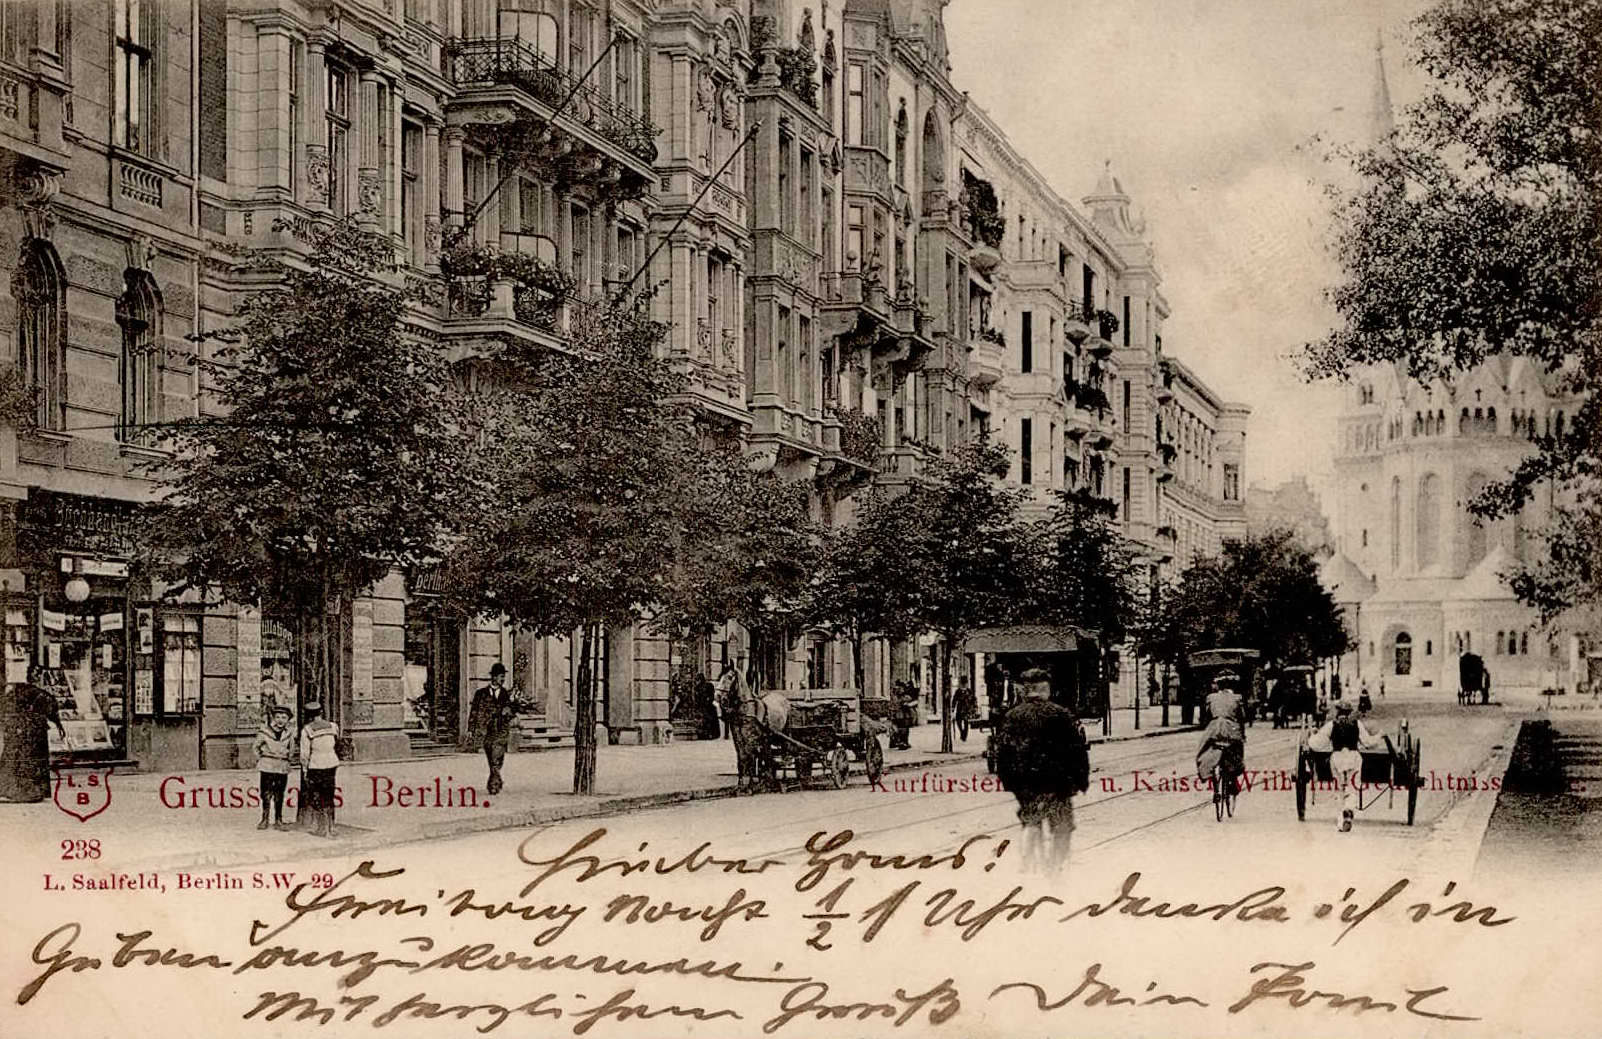 Buchhandlung
L. S.
B
Gruss aus Berlin.
Kurfürsten u. Kaiser Wilhelm-Gedächtniss
238
L. Saalfeld, Berlin S.W. 29
Lieber Hans!
Freitag Nacht 1/2 1 Uhr denke ich in
Guben anzukommen.
Mit herzlichem Gruß Dein Paul